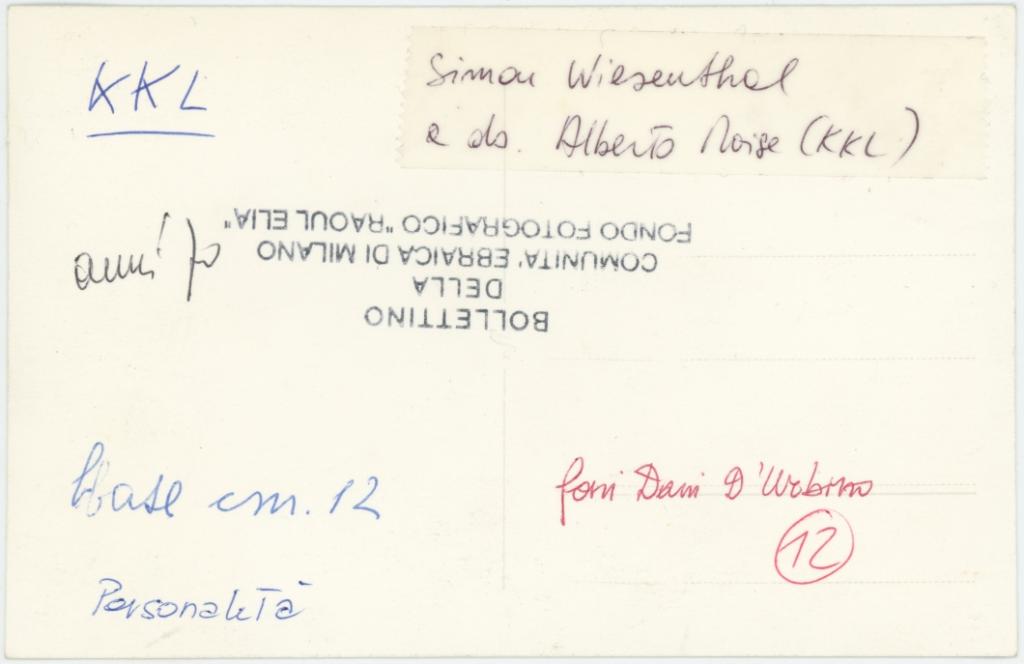 KKL
Simon Wiesenthal
e ds. Alberto Moise (KKL)
anni 70
BOLLETTINO
DELLA
COMUNITA' EBRAICA DI MILANO
FONDO FOTOGRAFICO "RAOUL ELIA"
base cm. 12
Dani D'Urbino
12
Personalità